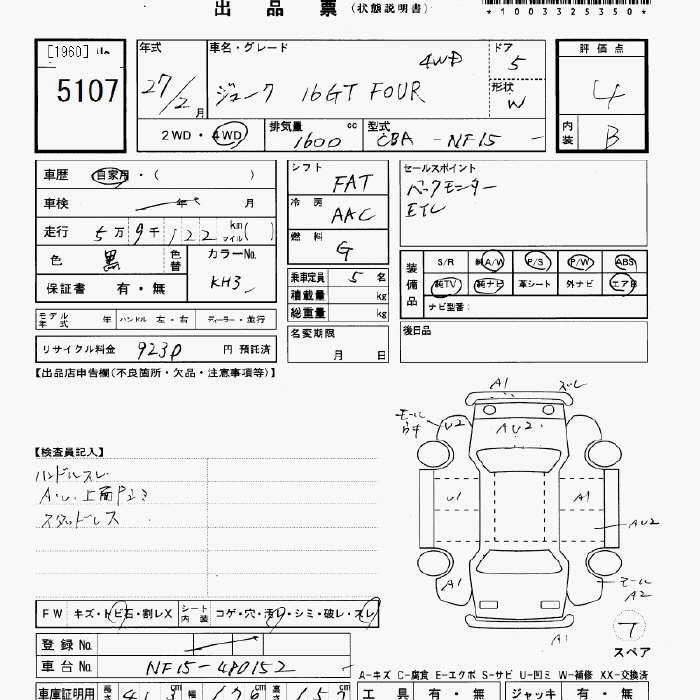 出品票（状態説明書）
*1003325350*
[1960]
5107
年式 27/2月
車名・グレード
ジューク 16GT FOUR 4WD
ドア 5
形状 W
評価点 4
内装 B
2WD・4WD
排気量 1600 cc
型式 CBA - NF15 -
車歴 自家用・( )
車検 年 月
走行 5万9千122 km マイル( )
色 黒 色替
カラーNo. KH3
保証書 有・無
シフト FAT
冷房 AAC
燃料 G
乗車定員 5名
積載量 kg
総重量 kg
名変期限 月 日
セールスポイント
バックモニター
ETC
装備品
S/R 純A/W P/S P/W ABS
純TV 純ナビ 革シート 外ナビ エアB
ナビ型番：
後日品
モデル年式 年 ハンドル 左・右 ディーラー・並行
リサイクル料金 9230 円 預託済
【出品店申告欄(不良箇所・欠品・注意事項等)】
【検査員記入】
ハンドルスレ
スタッドレス
A1 スレ
モールウキ
U2 AU2
U1 A1
AU2
A1 モール
A2
A1
7
スペア
FW キズ・トビ石・割レX シート内装 コゲ・穴・汚レ・シミ・破レ・スレ
登録No.
車台No. NF15-480152
A-キズ C-腐食 E-エクボ S-サビ U-凹ミ W-補修 XX-交換済
車庫証明用 長さ 41 cm 幅 176 cm 高さ 157
工具 有・無 ジャッキ 有・無